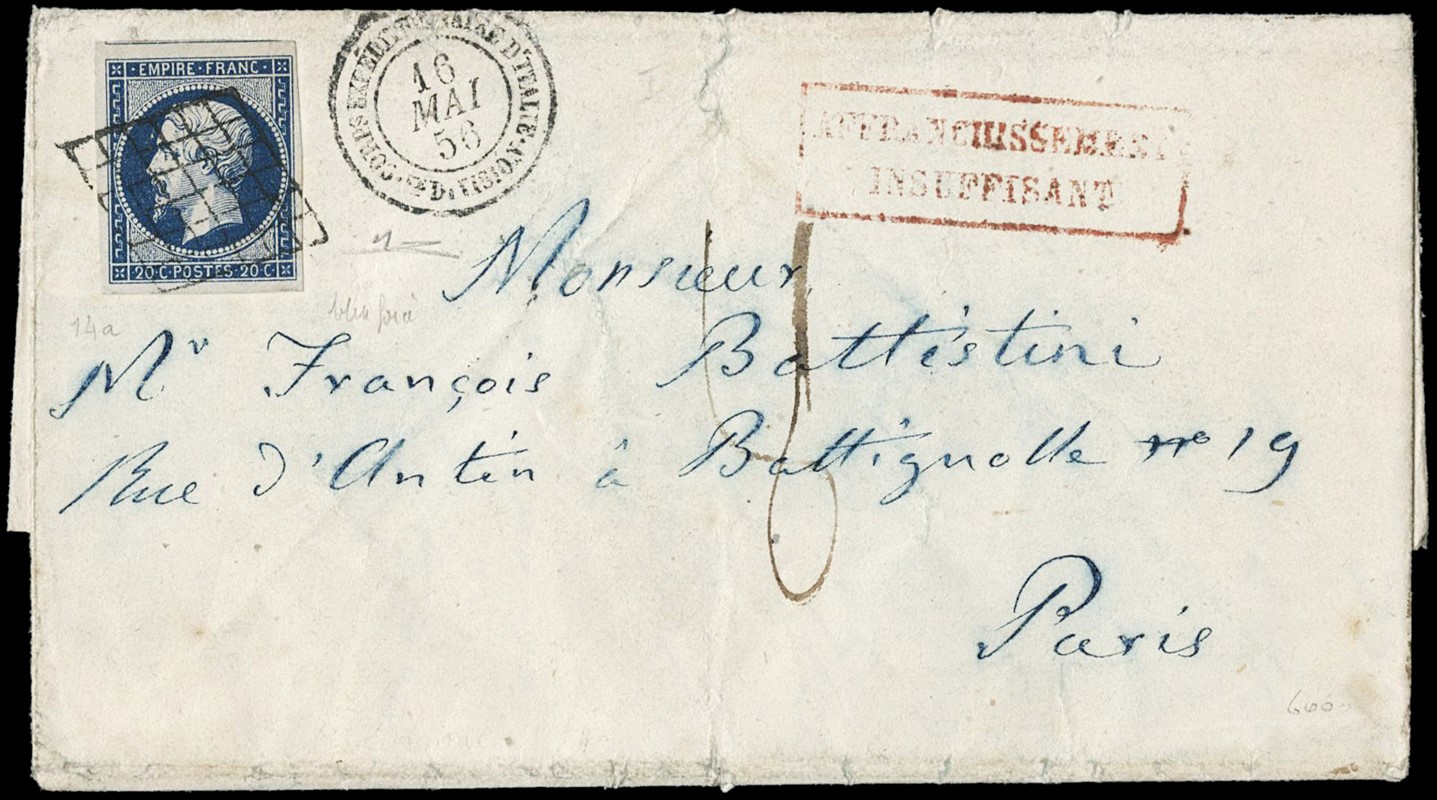 EMPIRE·FRANC·
20·C·POSTES·20·C·
CORPS EXPÉDITIONNAIRE D'ITALIE·
DIVISION
16
MAI
56
AFFRANCHISSEMENT
INSUFFISANT
Monsieur
Mr François Battéstini
Rue d'Antin à Battignolle no 19
Paris
14a